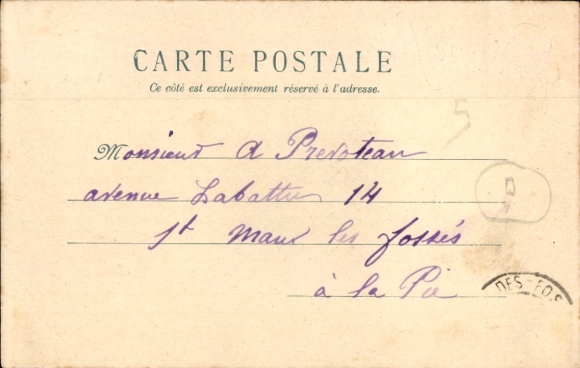 CARTE POSTALE
Ce côté est exclusivement réservé à l'adresse.
5
Monsieur A Prevoteau
avenue Labattu 14
St Maur les fossés
à la Pie
DES-FOS